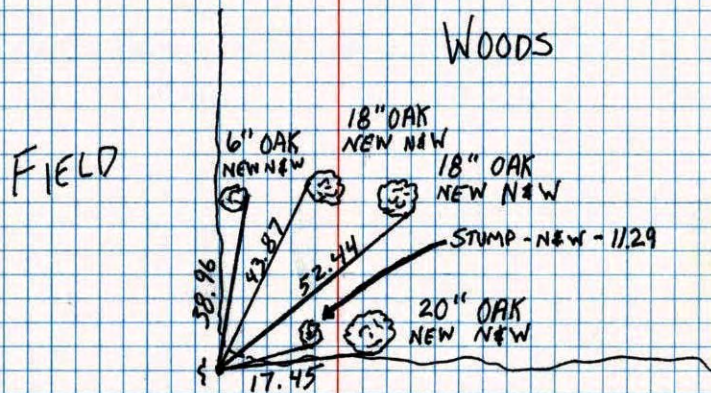 WOODS
FIELD
6" OAK
NEW N&W
18" OAK
NEW N&W
18" OAK
NEW N&W
STUMP - N&W - 11.29
20" OAK
NEW N&W
38.96
43.87
52.44
17.45